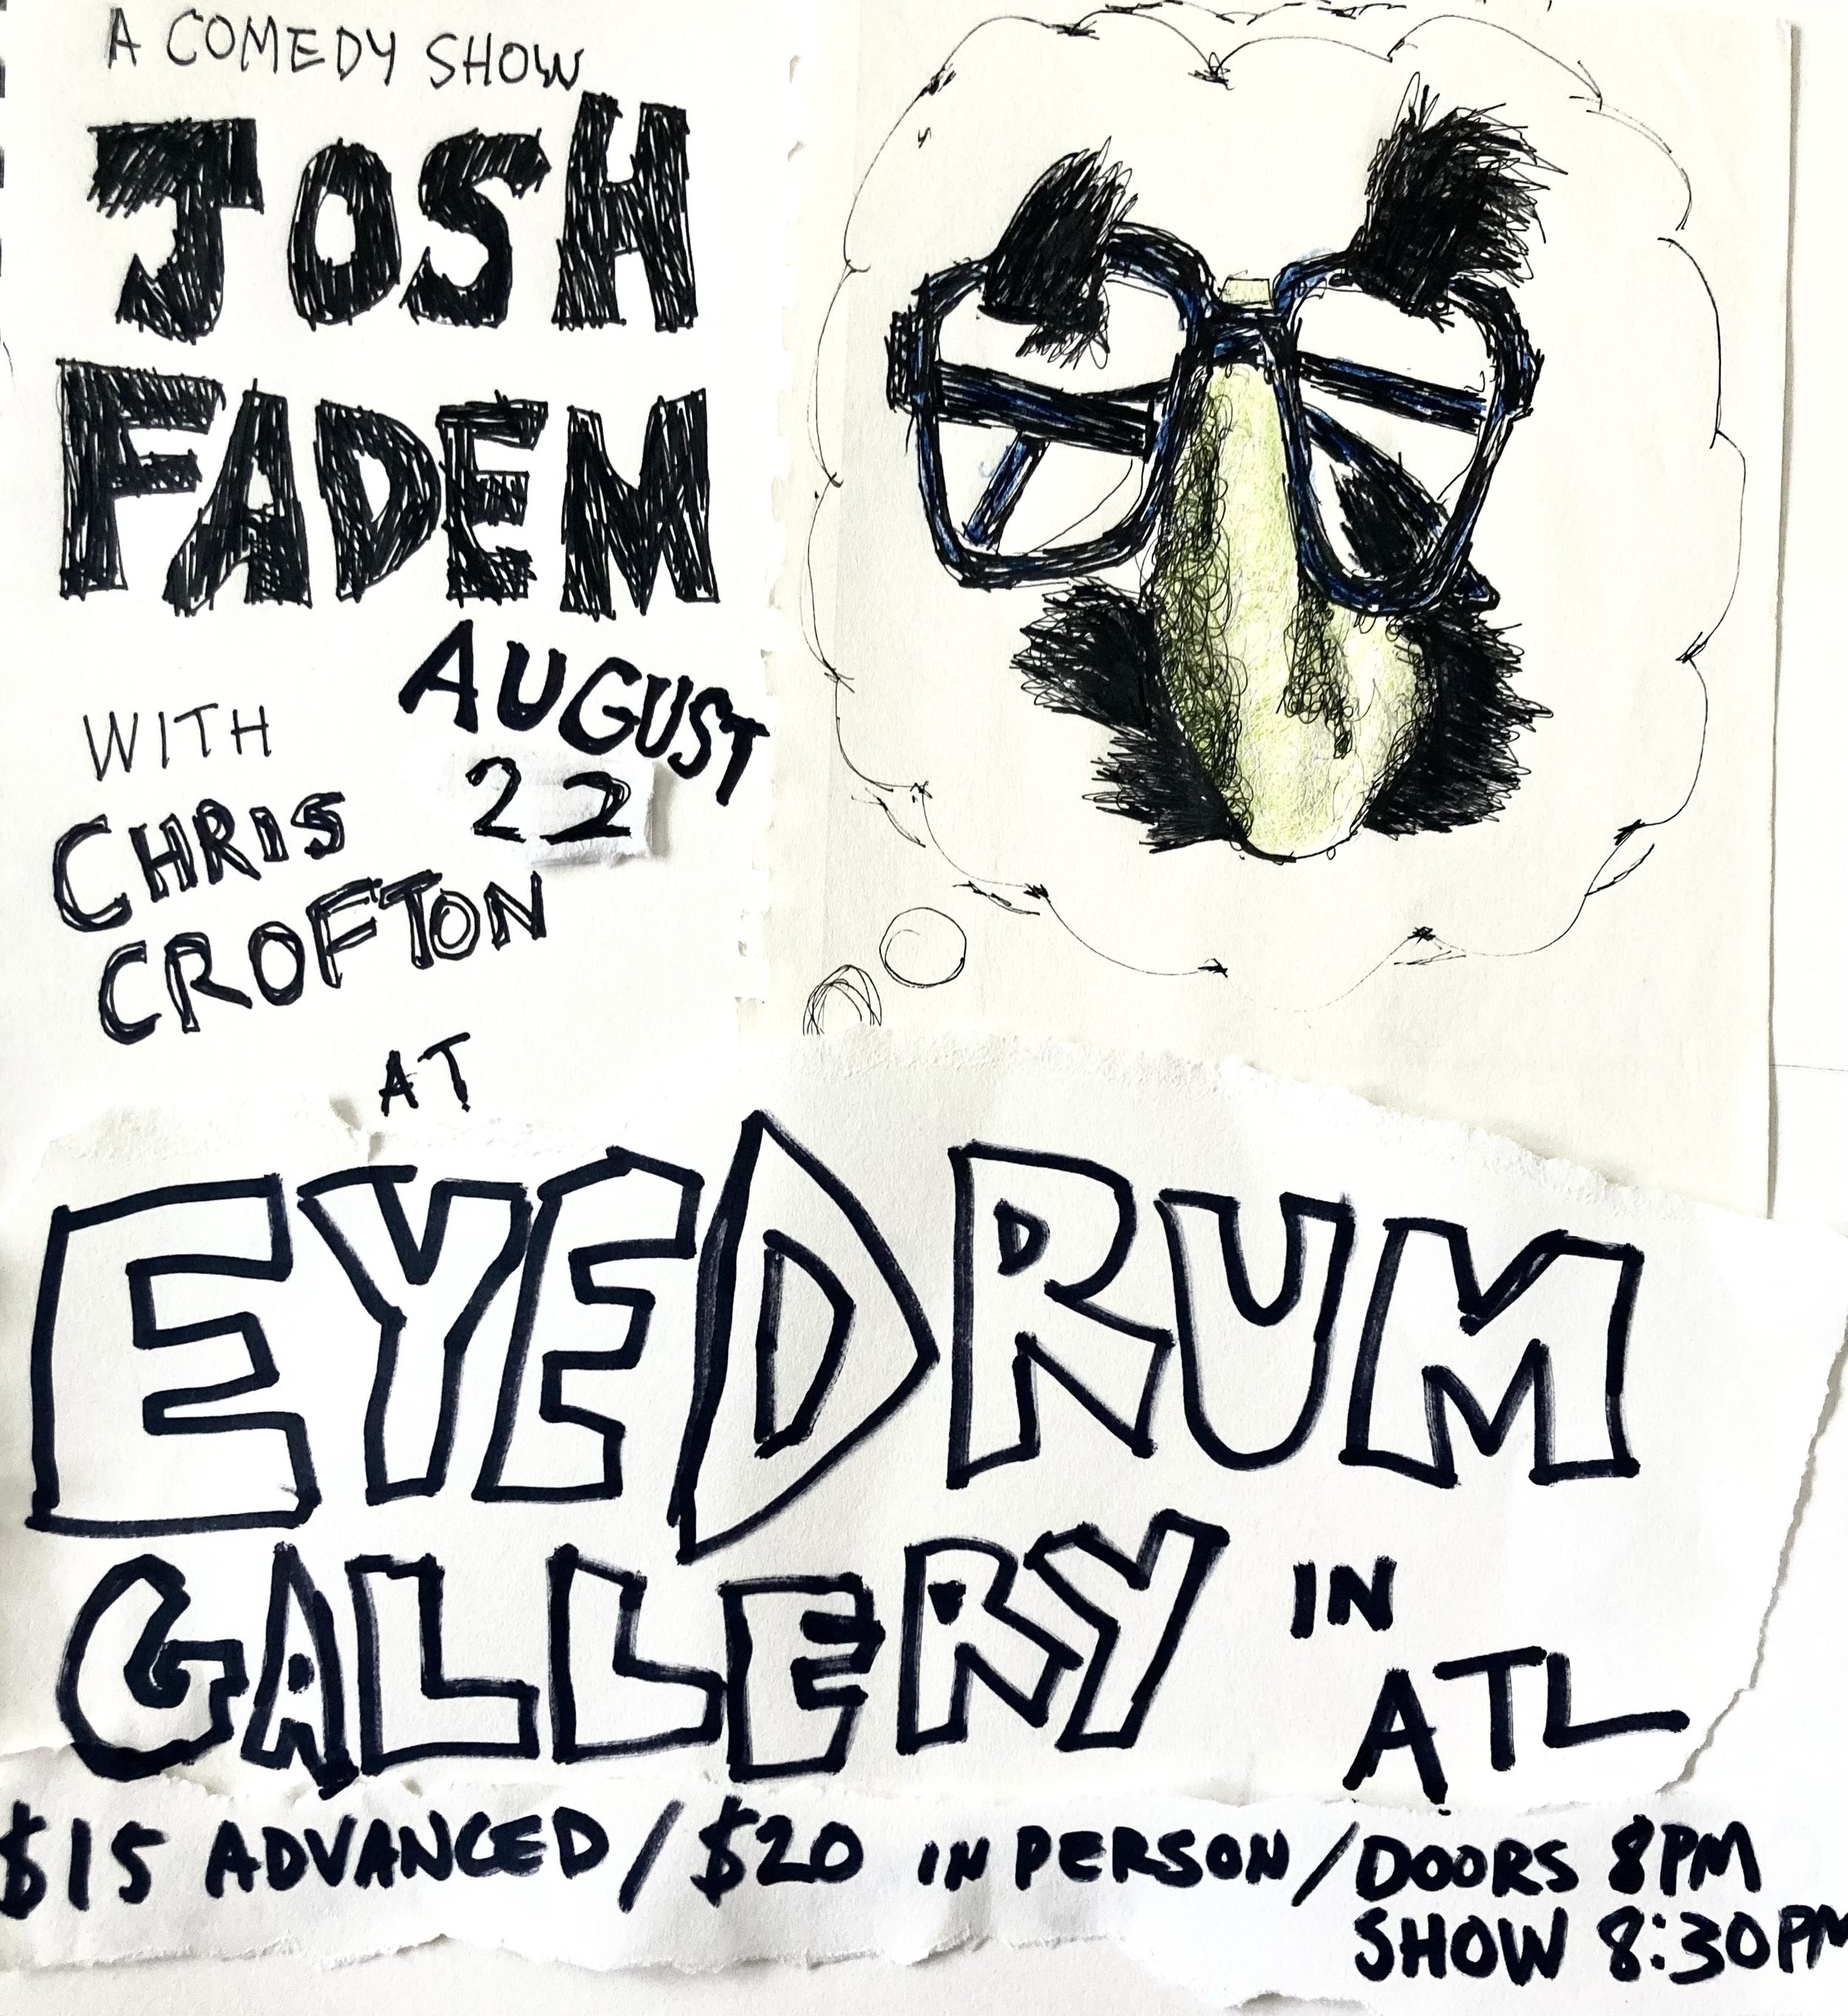 A COMEDY SHOW
JOSH
FADEM
AUGUST
22
WITH
CHRIS
CROFTON
AT
EYEDRUM
GALLERY
IN
ATL
$15 ADVANCED / $20 IN PERSON / DOORS 8PM
SHOW 8:30PM